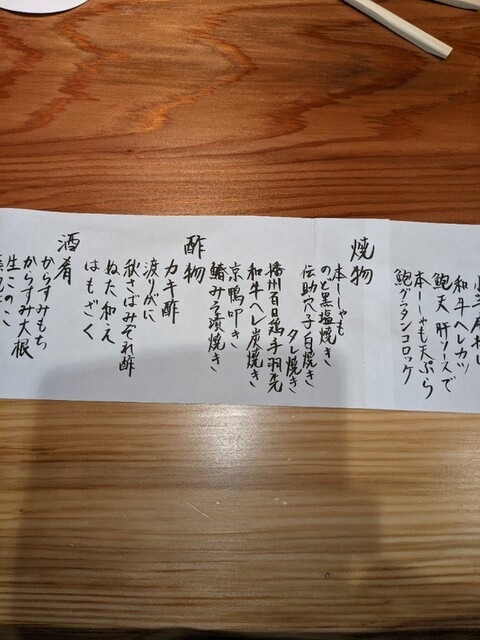 和牛ヘレカツ
鮑天 肝ソースで
本ししゃも天ぷら
鮑グラタンコロッケ
焼物
本ししゃも
のど黒塩焼き
伝助穴子白焼き
タレ焼き
播州百日鶏手羽先
和牛ヘレ炭焼き
京鴨叩き
鰆みそ漬焼き
酢物
カキ酢
渡りがに
秋さばみぞれ酢
ぬた和え
はもざく
酒肴
からすみもち
からすみ大根
生このこ